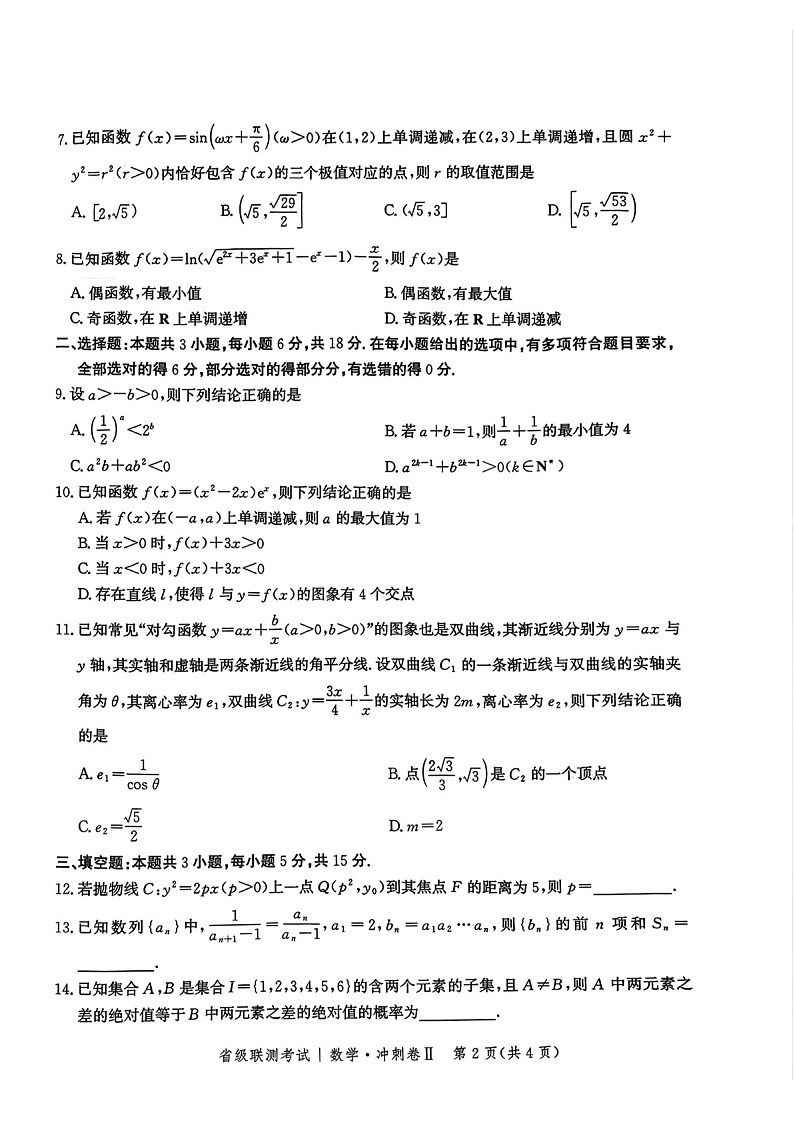 7. 已知函数 f(x)=sin(ωx+π/6)(ω>0)在(1,2)上单调递减,在(2,3)上单调递增,且圆 x²+
y²=r²(r>0)内恰好包含 f(x)的三个极值对应的点,则 r 的取值范围是
A. [2,√5) B. (√5,√29/2] C. (√5,3] D. [√5,√53/2)
8. 已知函数 f(x)=ln(√(e²ˣ+3eˣ+1)-eˣ-1)-x/2,则 f(x)是
A. 偶函数,有最小值 B. 偶函数,有最大值
C. 奇函数,在 R 上单调递增 D. 奇函数,在 R 上单调递减
二、选择题:本题共 3 小题,每小题 6 分,共 18 分.在每小题给出的选项中,有多项符合题目要求,
全部选对的得 6 分,部分选对的得部分分,有选错的得 0 分.
9. 设 a>-b>0,则下列结论正确的是
A. (1/2)ᵃ<2ᵇ B. 若 a+b=1,则1/a+1/b的最小值为 4
C. a²b+ab²<0 D. a²ᵏ⁻¹+b²ᵏ⁻¹>0(k∈N*)
10. 已知函数 f(x)=(x²-2x)eˣ,则下列结论正确的是
A. 若 f(x)在(-a,a)上单调递减,则 a 的最大值为 1
B. 当 x>0 时,f(x)+3x>0
C. 当 x<0 时,f(x)+3x<0
D. 存在直线 l,使得 l 与 y=f(x)的图象有 4 个交点
11. 已知常见“对勾函数 y=ax+b/x(a>0,b>0)”的图象也是双曲线,其渐近线分别为 y=ax 与
y 轴,其实轴和虚轴是两条渐近线的角平分线.设双曲线 C₁ 的一条渐近线与双曲线的实轴夹
角为 θ,其离心率为 e₁,双曲线 C₂:y=3x/4+1/x的实轴长为 2m,离心率为 e₂,则下列结论正确
的是
A. e₁=1/cos θ B. 点(2√3/3,√3)是 C₂ 的一个顶点
C. e₂=√5/2 D. m=2
三、填空题:本题共 3 小题,每小题 5 分,共 15 分.
12. 若抛物线 C:y²=2px(p>0)上一点 Q(p²,y₀)到其焦点 F 的距离为 5,则 p=________.
13. 已知数列{aₙ}中,1/(aₙ₊₁-1)=aₙ/(aₙ-1),a₁=2,bₙ=a₁a₂…aₙ,则{bₙ}的前 n 项和 Sₙ=
________.
14. 已知集合 A,B 是集合 I={1,2,3,4,5,6}的含两个元素的子集,且 A≠B,则 A 中两元素之
差的绝对值等于 B 中两元素之差的绝对值的概率为________.
省级联测考试 | 数学·冲刺卷Ⅱ 第 2 页(共 4 页)